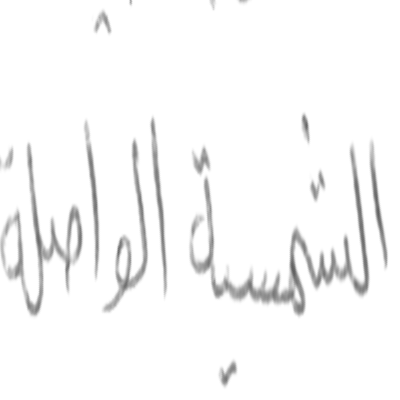 الشمسية الواصلة